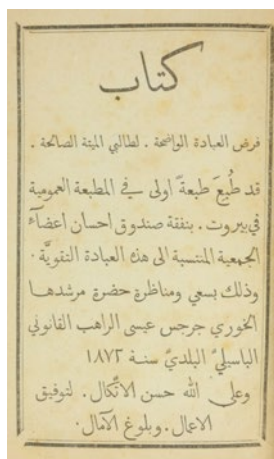 كتاب
فرض العبادة الواضحة . لطالبي الميتة الصالحة .
قد طُبِعَ طبعةً اولى في المطبعة العمومية
في بيروت . بنفقة صندوق احسان اعضاء
الجمعية المنتسبة الى هذه العبادة التقويَّة .
وذلك بسعي ومناظرة حضرة مرشدها
الخوري جرجس عيسى الراهب القانوني
الباسيليّ البلديّ سنة ١٨٧٢
وعلى الله حسن الاتّكال . لتوفيق
الاعمال . وبلوغ الآمال .